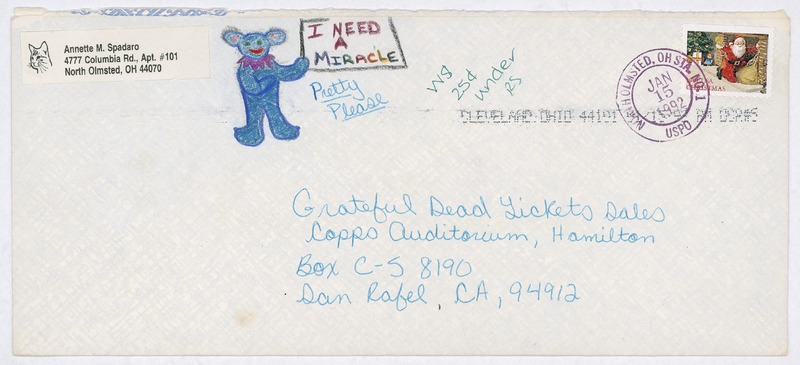 Annette M. Spadaro
4777 Columbia Rd., Apt. #101
North Olmsted, OH 44070
I NEED
A
MIRACLE
Pretty
Please
under
NORTH OLMSTED, OH STA. NO. 1
JAN
15
1992
USPO
CHRISTMAS
CLEVELAND, OHIO 44101
Grateful Dead Tickets Sales
Copps Auditorium, Hamilton
Box C-S 8190
San Rafel, CA, 94912